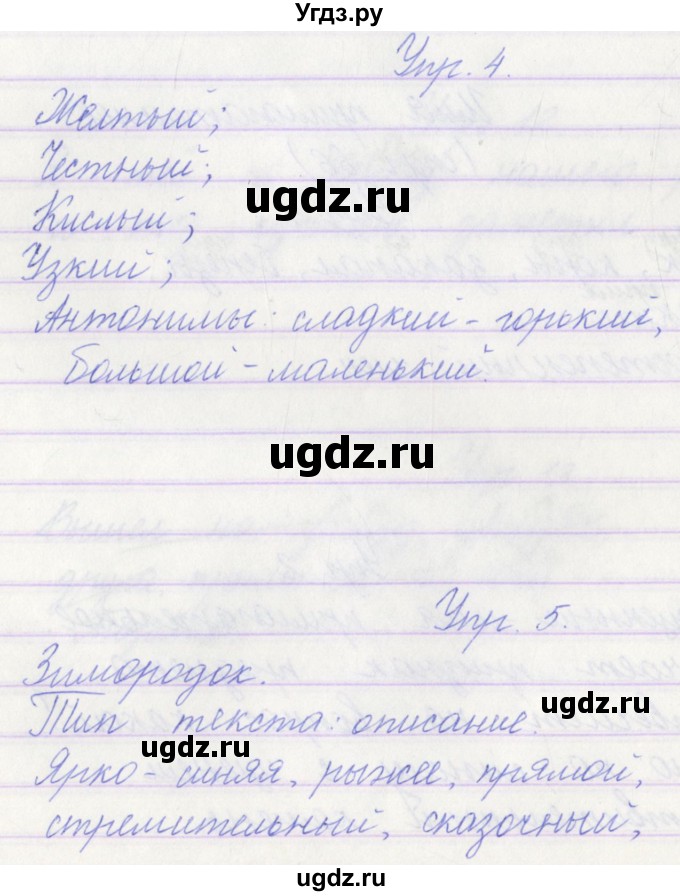 Угдз.ру
Упр. 4.
Желтый;
Честный;
ugdz.ru
Кислый;
Узкий;
Антонимы: сладкий - горький,
большой - маленький.
ugdz.ru
Упр. 5.
Зимородок.
Тип текста: описание.
ugdz.ru
ugdz.ru
Ярко-синяя, рыжее, прямой,
стремительный, сказочный,
ugdz.ru